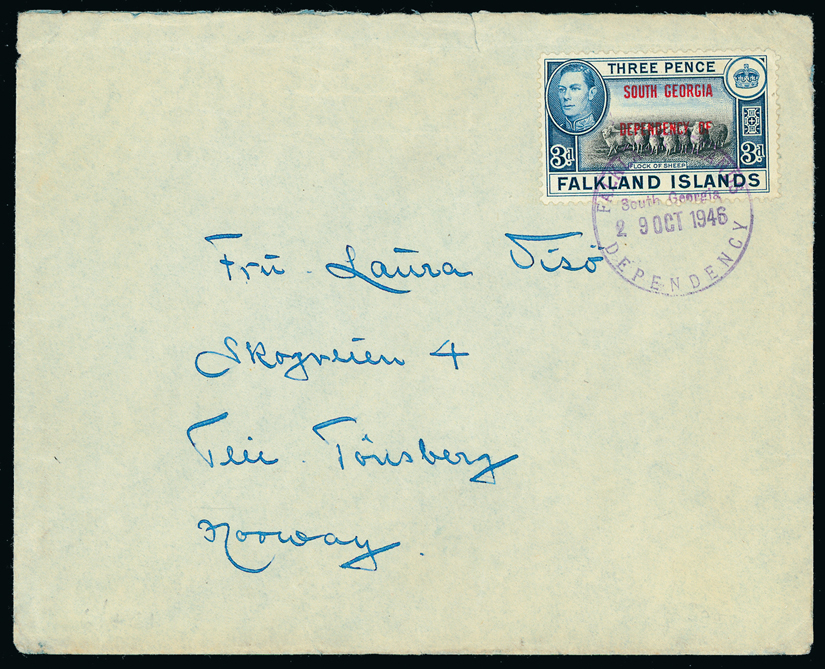 THREE PENCE
SOUTH GEORGIA
DEPENDENCY OF
3d 3d
FLOCK OF SHEEP
FALKLAND ISLANDS
South Georgia
2 9 OCT 1946
DEPENDENCY
Frū Laūra Visö
Skogveien 4
Teie Tönsberg
Norway.